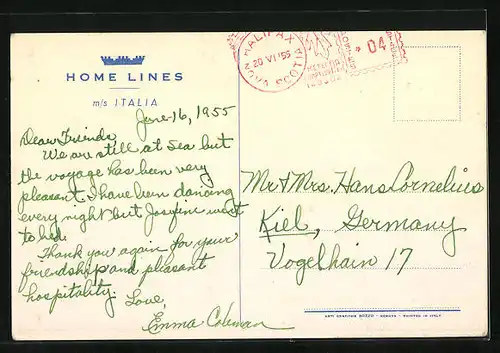 HOME LINES
m/s ITALIA
June 16, 1955
Dear Friends,
We are still at sea but
the voyage has been very
pleasant. I have been dancing
every night but Josefine went
to bed.
Thank you again for your
friendship and pleasant
hospitality.
Love,
Emma Coleman
HALIFAX
20 VI 55
NOVA SCOTIA
04
Mr & Mrs. Hans Cornelius
Kiel, Germany
Vogelhain 17
ARTI GRAFICHE BOZZO - GENOVA - PRINTED IN ITALY